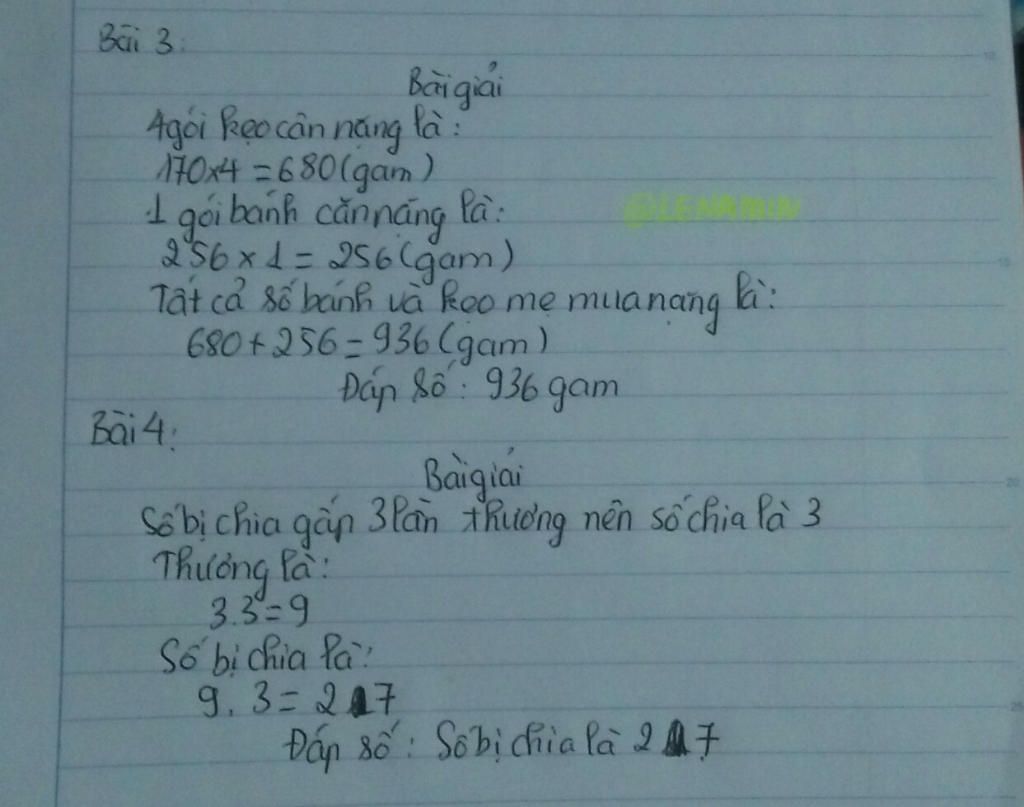 Bài 3:
Bài giải
4 gói kẹo cân nặng là:
170x4 = 680 (gam)
1 gói bánh cân nặng là:
256 x 1 = 256 (gam)
Tất cả số bánh và kẹo mẹ mua nặng là:
680 + 256 = 936 (gam)
Đáp số: 936 gam
Bài 4:
Bài giải
Số bị chia gấp 3 lần thương nên số chia là 3
Thương là:
3.3 = 9
Số bị chia là:
9.3 = 27
Đáp số: Số bị chia là 27
@LENAMIN